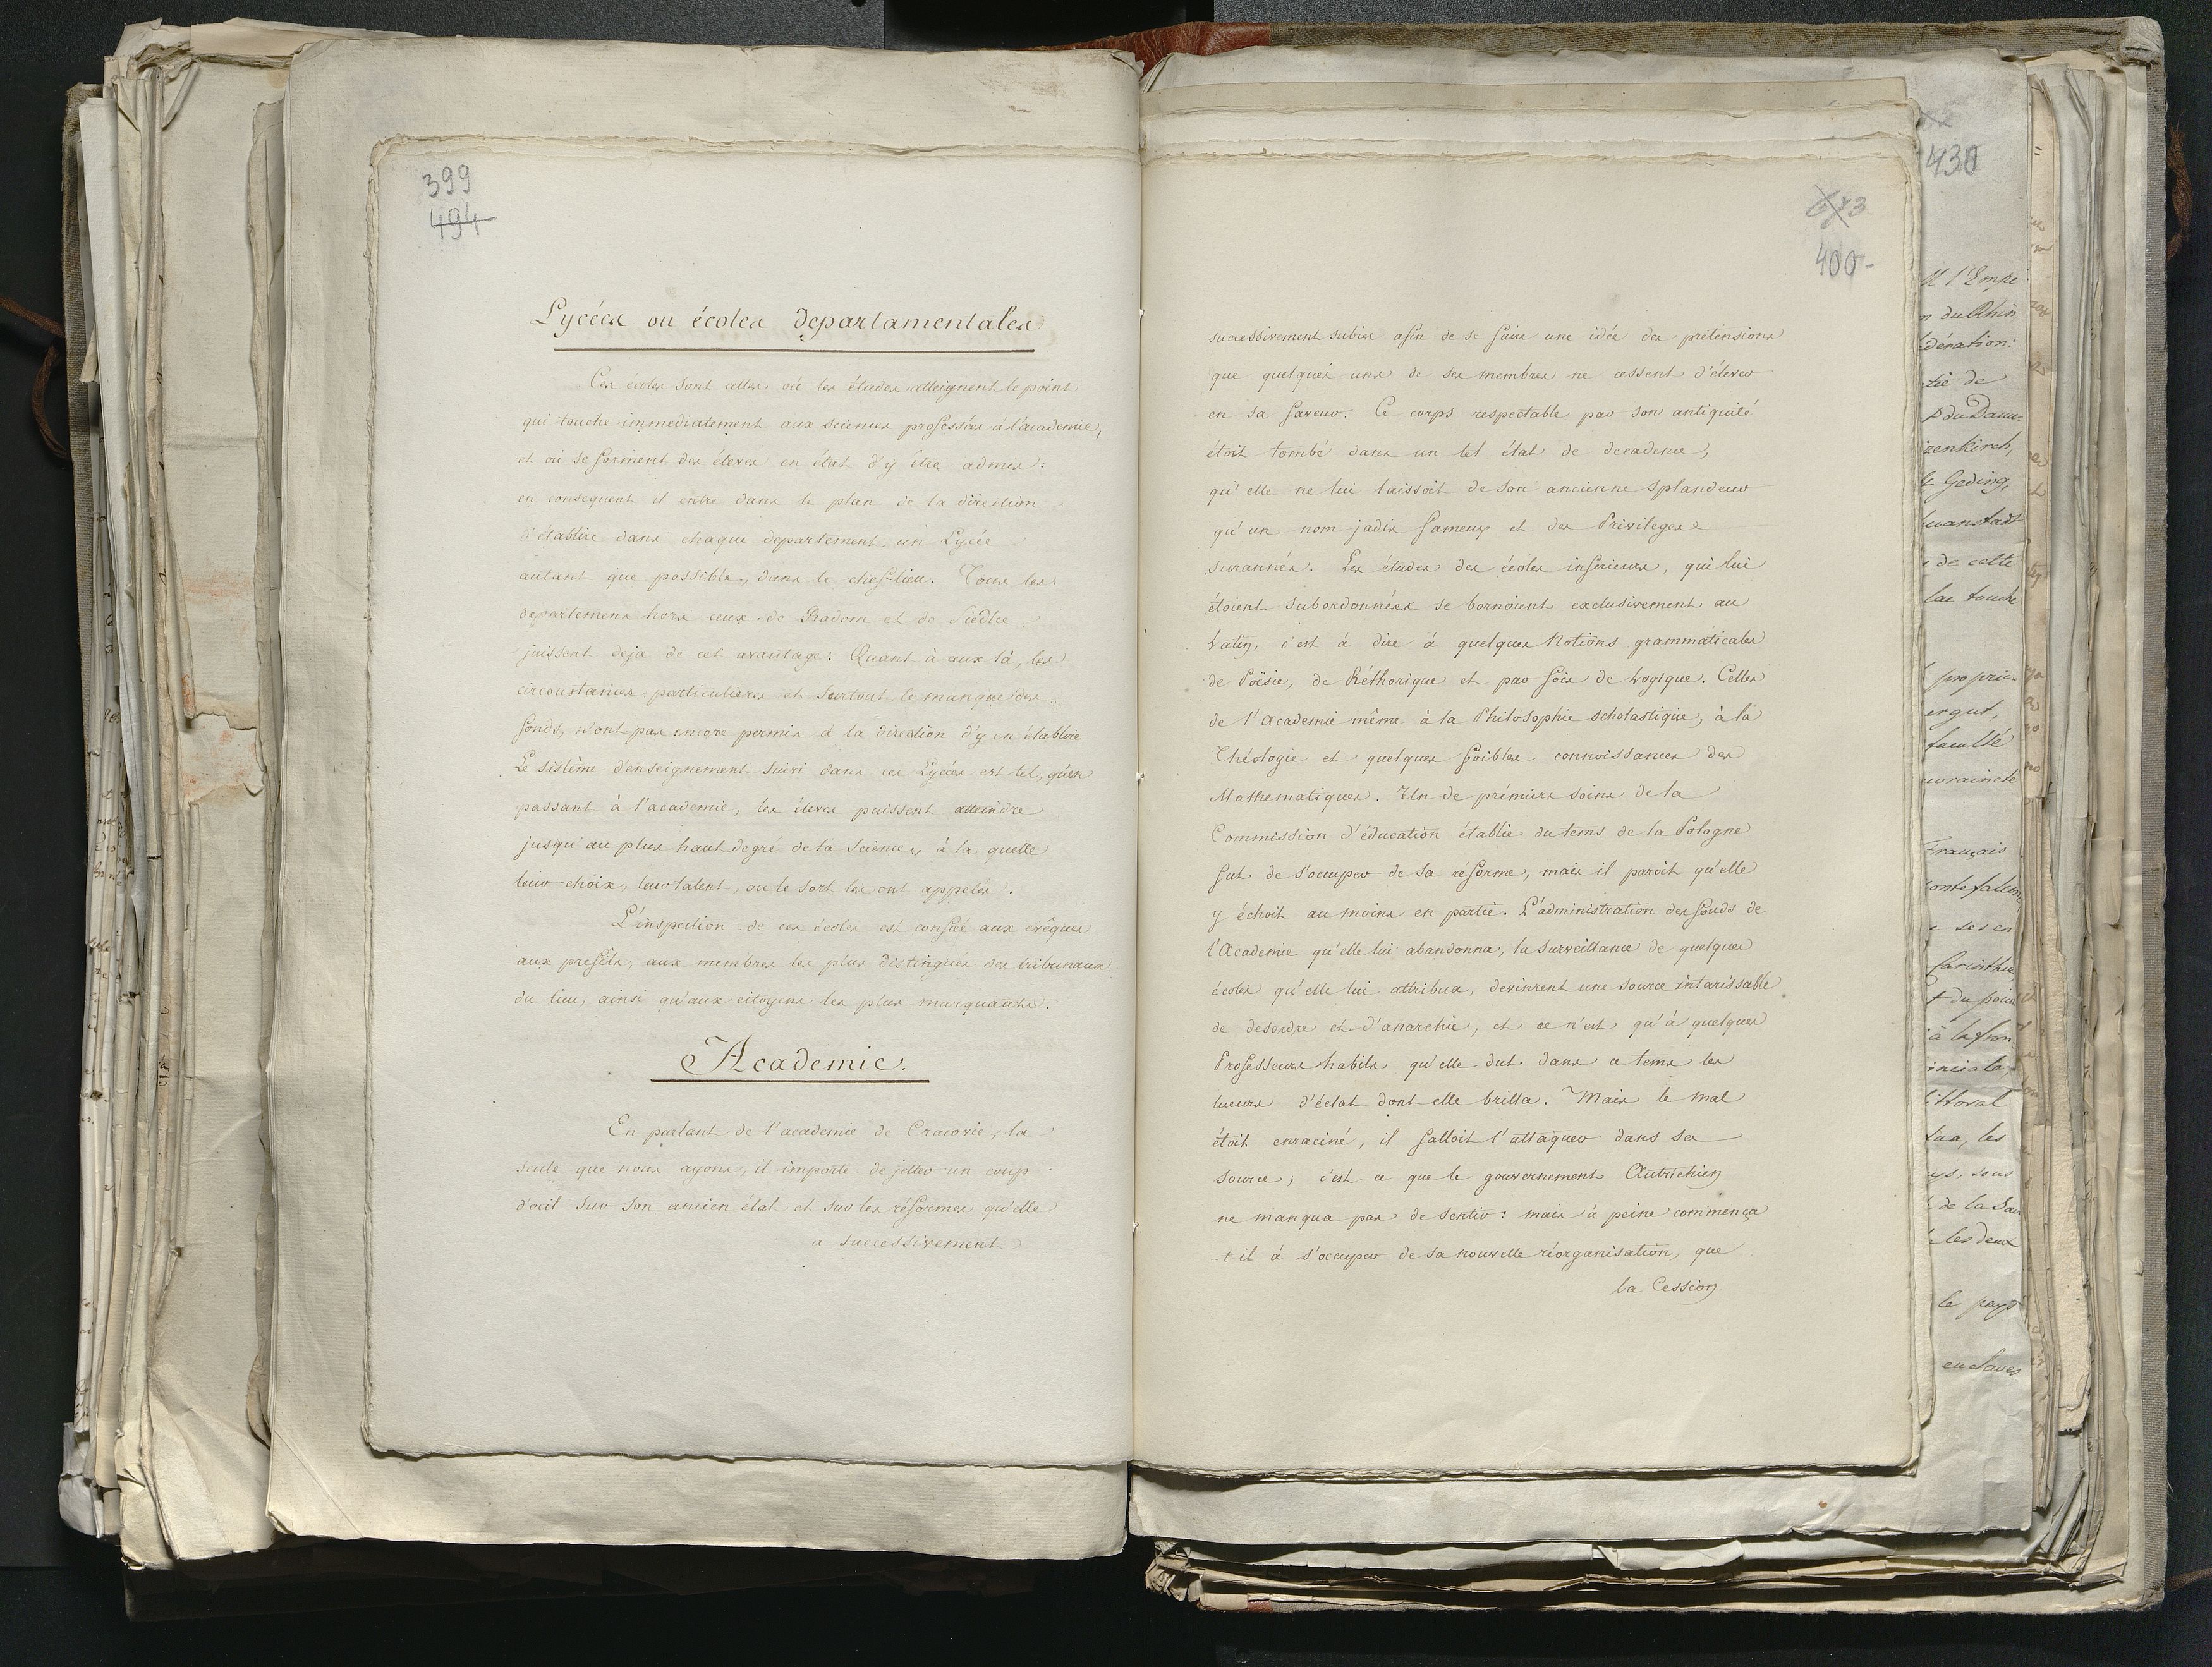 399
494
Lycées ou écoles departamentales
Ces écoles sont celles où les études atteignent le point
qui touche immediatement aux sciences professées à l'académie,
et où se forment des éleves en état d'y être admis:
en consequent il entre dans le plan de la direction
d'établire dans chaque departement un Lycée
autant que possible, dans le chef-lieu. Tous les
departemens hors ceux de Radom et de Siedlce
juissent deja de cet avantage. Quant à ceux là, les
circonstances particulières et surtout le manque des
fonds, n'ont pas encore permis à la direction d'y en établire
Le sistème d'enseignement suivi dans ces Lycées est tel, qu'en
passant à l'academie, les éleves puissent atteindre
jusqu'au plus haut degré de la science, à la quelle
leur choix, leur talent, ou le sort les ont appelés.
L'inspection de ces écoles est confiée aux evêques
aux prefets, aux membres les plus distingués des tribunaux
du lieu, ainsi qu'aux citoyens les plus marquants.
Academie.
En parlant de l'academie de Cracovie, la
seule que nous ayons, il importe de jetter un coup
d'oeil sur son ancien état et sur les réformes qu'elle
a successivement
673
400-
successivement subies afin de se faire une idée des prétensions
que quelques uns de ses membres ne cessent d'élever
en sa faveur. Ce corps respectable par son antiquité
étoit tombé dans un tel état de decadence,
qu'elle ne lui laissoit de son ancienne splandeur
qu'un nom jadis fameux et des Privileges
surannés. Les études des écoles inferieures, qui lui
étoient subordonnées se bornoient exclusivement au
Latin, c'est à dire à quelques Notions grammaticales
de Poësie, de Réthorique et par fois de Logique. Celles
de l'Academie même à la Philosophie scholastique, à la
Théologie et quelques foibles connoissances des
Mathematiques. Un de prémiers soins de la
Commission d'éducation établie du tems de la Pologne
fut de s'occuper de sa réforme, mais il paroit qu'elle
y échoit au moins en partie. L'administration des fonds de
l'Academie qu'elle lui abandonna, la surveillance de quelques
écoles qu'elle lui attribua, devinrent une source intarissable
de desordre et d'anarchie, et ce n'est qu'à quelques
Professeurs habils qu'elle dut dans ce tems les
lueurs d'éclat dont elle brilla. Mais le mal
étoit enraciné, il falloit l'attaquer dans sa
source, c'est ce que le gouvernement Autrichien
ne manqua pas de sentir: mais à peine commença
-t-il à s'occuper de sa nouvelle réorganisation, que
la Cession
430
M l'Empe
n du Rhin
dération:
tié de
zenkirch,
Geding,
de cette
propriè
ergut,
faculté
Français
Carinthie
littoral
de la Sau
les deux
le pays
enclaves